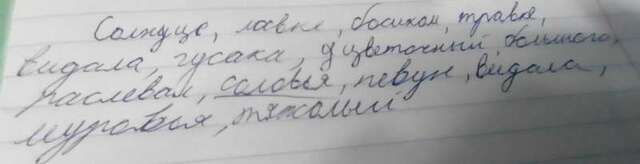 Солнце, лавке, босиком, травке,
видала, гусака, цветочный, большого,
распевал, соловья, певун, видала,
муровья, тяжолый